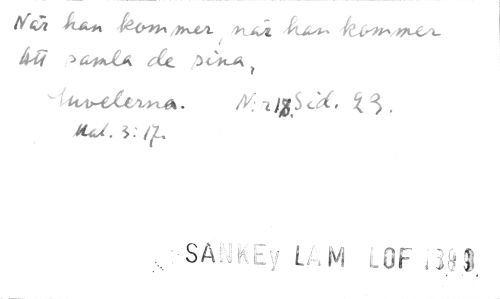 När han kommer, när han kommer
Att samla de sina,
Juvelerna. N:r 18. Sid. 23.
Mal. 3:17.
SANKEy LAM LOF 1883